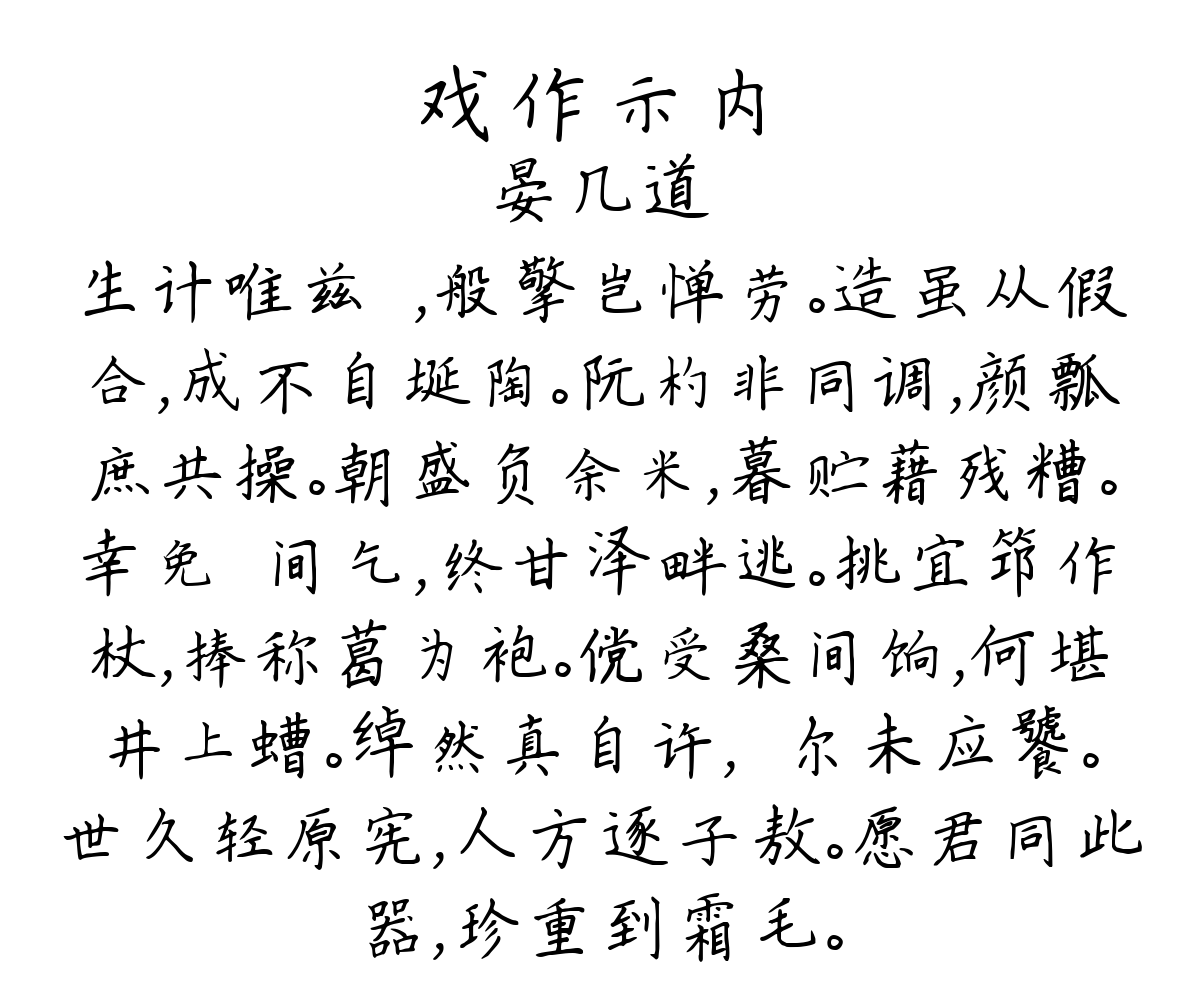 戏作示内
晏几道
生计唯兹 ,般擎岂惮劳。造虽从假
合,成不自埏陶。阮杓非同调,颜瓢
庶共操。朝盛负余米,暮贮藉残糟。
幸免 间乞,终甘泽畔逃。挑宜筇作
杖,捧称葛为袍。傥受桑间饷,何堪
井上螬。绰然真自许, 尔未应饕。
世久轻原宪,人方逐子敖。愿君同此
器,珍重到霜毛。